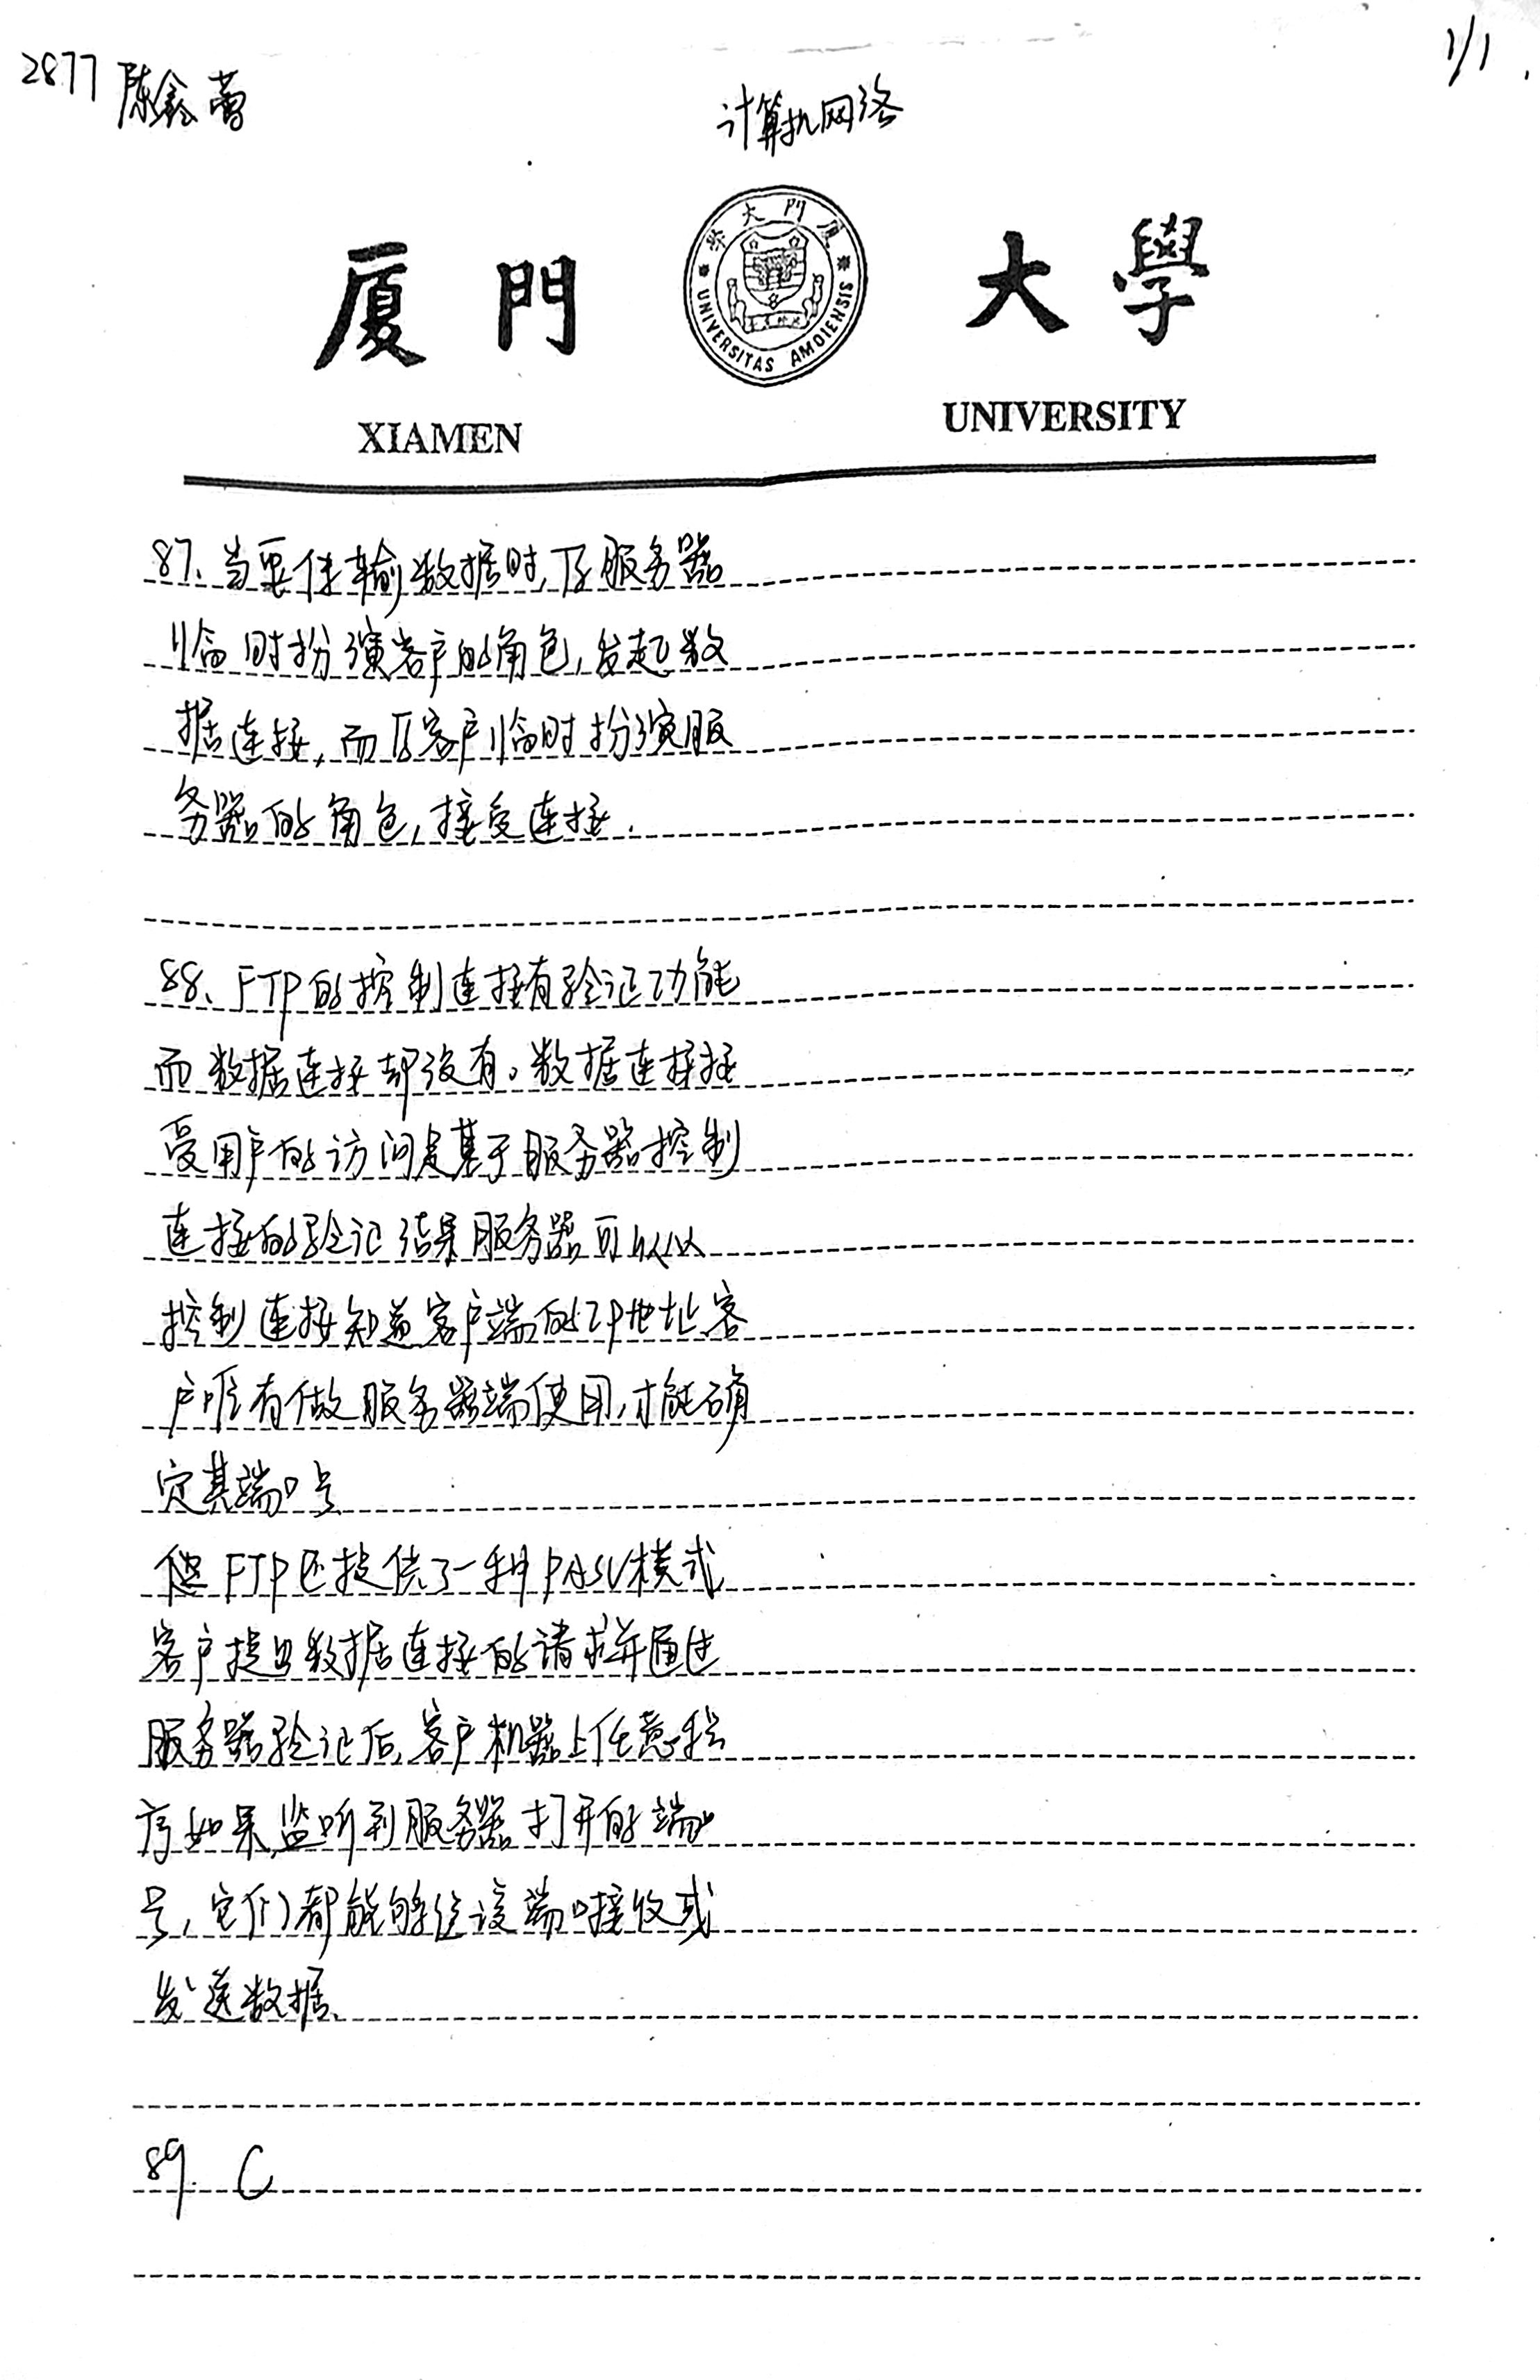 2877 陈鑫蕾
计算机网络
1/1
厦門大學
UNIVERSITAS AMOIENSIS
厦 門 大 學
XIAMEN UNIVERSITY
87、当要传输数据时,原服务器
临时扮演客户的角色,发起数
据连接,而原客户临时扮演服
务器的角色,接受连接.
88、FTP的控制连接有验证功能
而数据连接却没有。数据连接接
受用户的访问是基于服务器控制
连接的验证结果服务器可以从
控制连接知道客户端的IP地址,客
户唯有做服务器端使用,才能确
定其端口号
但FTP还提供了一种PASV模式
客户提出数据连接的请求并通过
服务器验证后,客户机器上任意程
序如果监听到服务器打开的端口
号,它们都能够往该端口接收或
发送数据.
89. C